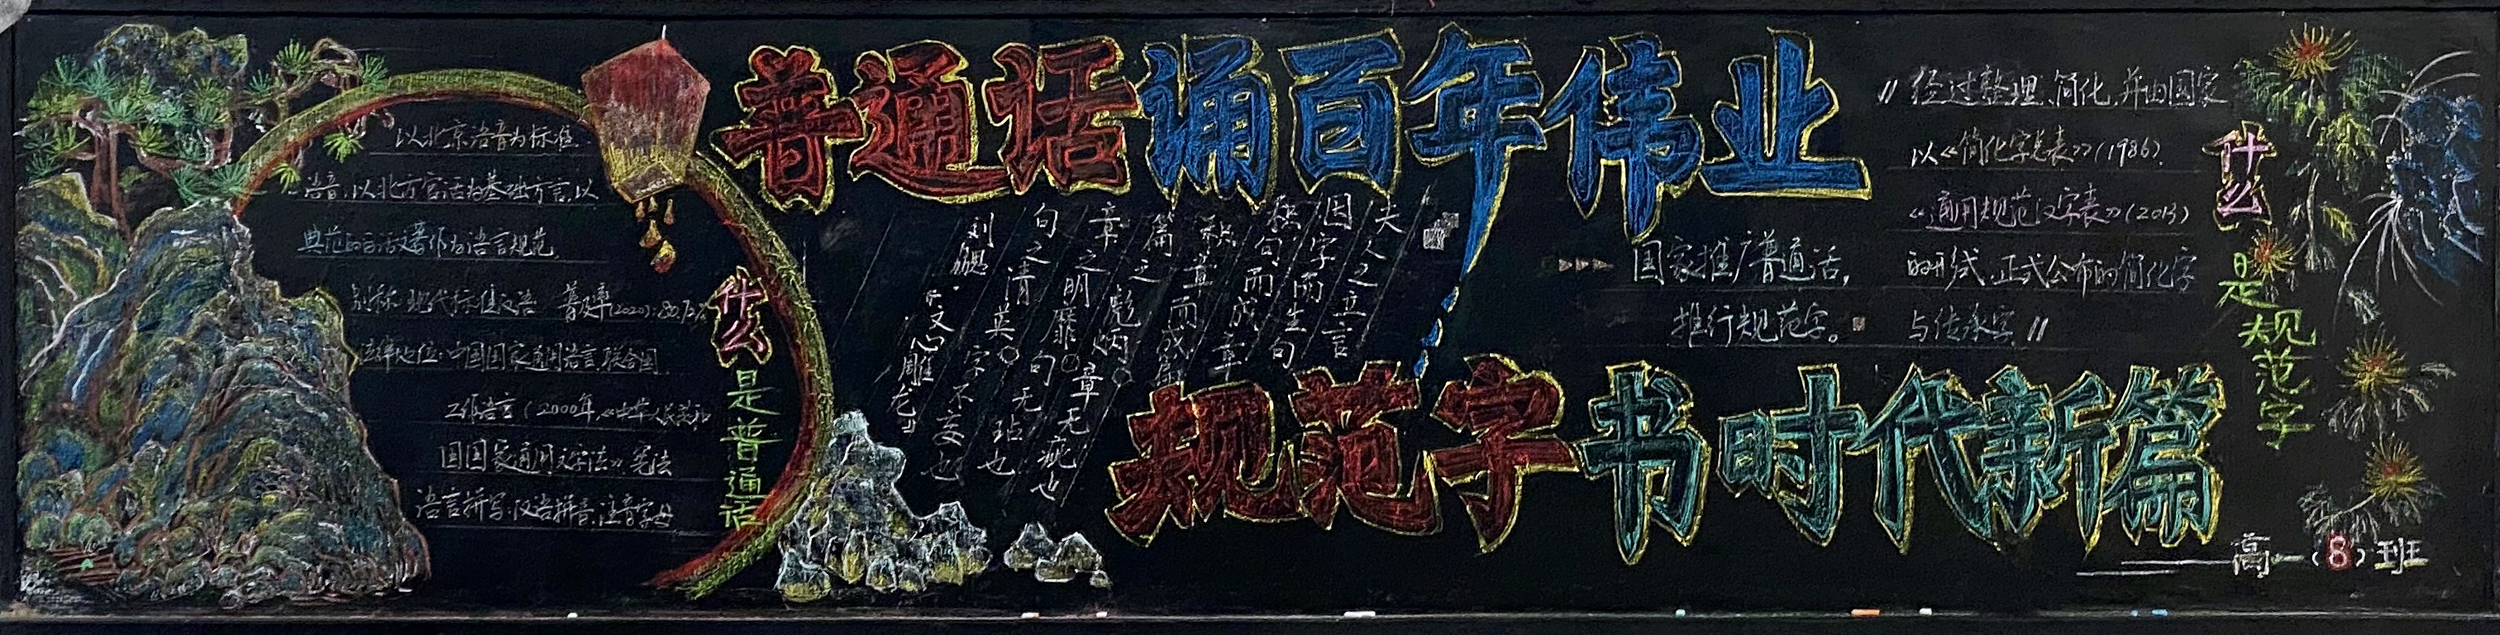 普通话诵百年伟业
规范字书时代新篇
以北京语音为标准
语音，以北方官话为基础方言，以
典范的白话文著作为语言规范。
别称：现代标准汉语 普及率(2020):80.72%
法律地位：中国国家通用语言 联合国
工作语言（2000年《中华人民共和
国国家通用文字法》宪法
语言拼写：汉语拼音，注音字母
什么是普通话
夫人之立言
因字而生句
积句而成章
积章而成篇
篇之彪炳，章无疵也
章之明靡，句无玷也
句之清英，字不妄也
刘勰·《文心雕龙》
国家推广普通话，
推行规范字。
"经过整理、简化，并由国家
以《简化字总表》(1986)
《通用规范汉字表》(2013)
的形式，正式公布的简化字
与传承字"
什么是规范字
高一(8)班